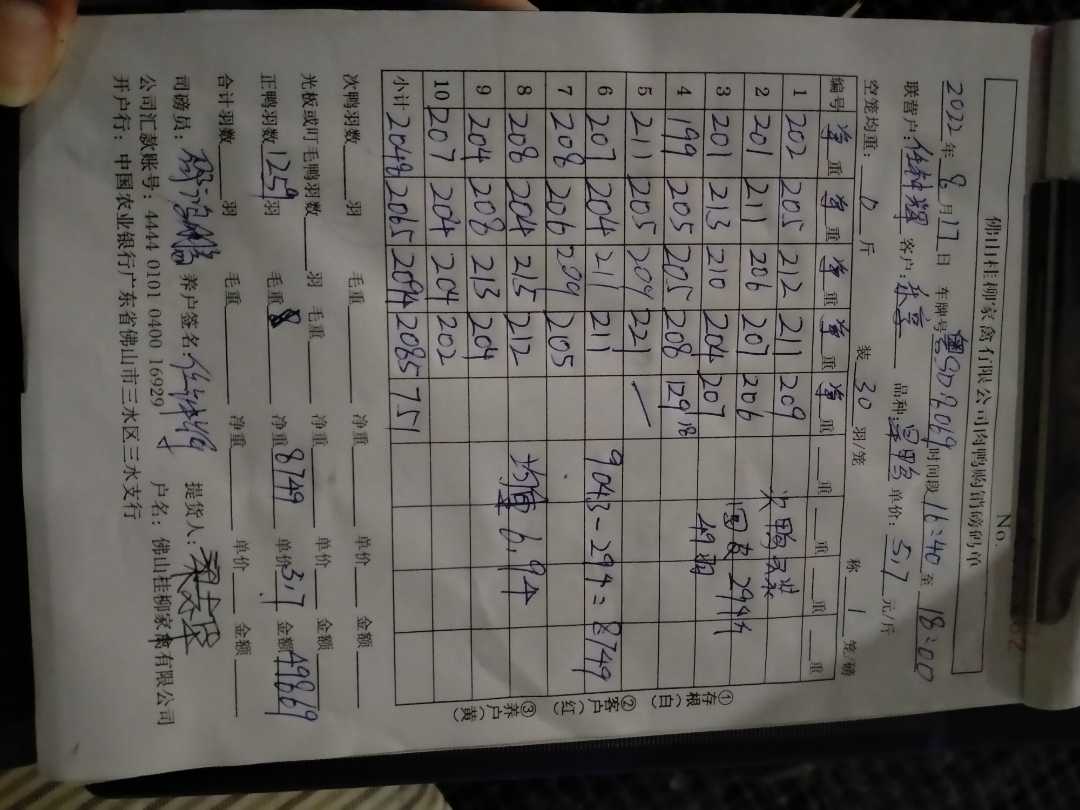 佛山桂柳家禽有限公司肉鸭购销磅码单
No.
2022年8月17日 车牌号 时间段16:40至18:00
联营户: 客户: 品种: 单价:5.7元/斤
空笼均重:0斤 装30羽/笼 称1笼/磅
编号 净重 净重 净重 净重 净重 重 重 重
1 202 205 212 211 209
2 201 211 206 207 206
3 201 213 210 204 207
4 199 205 205 208 129 18
5 211 205 209 221 —
6 207 204 211 211
7 208 206 209 205
8 208 204 215 212
9 204 208 213 204
10 207 204 204 202
小计 2048 2065 2094 2085 751
次鸭
49羽
9043-294=8749
均重6.94
次鸭羽数 羽 毛重 净重 单价 金额
光板或叮毛鸭羽数 羽 毛重 净重 单价 金额
正鸭羽数1259羽 毛重 净重8749 单价5.7 金额49869
合计羽数 羽 毛重 净重 单价 金额
司磅员: 养户签名: 提货人:
公司汇款账号:4444 0101 0400 16929 户名:佛山桂柳家禽有限公司
开户行:中国农业银行广东省佛山市三水区三水支行
①存根(白)
②客户(红)
③养户(黄)